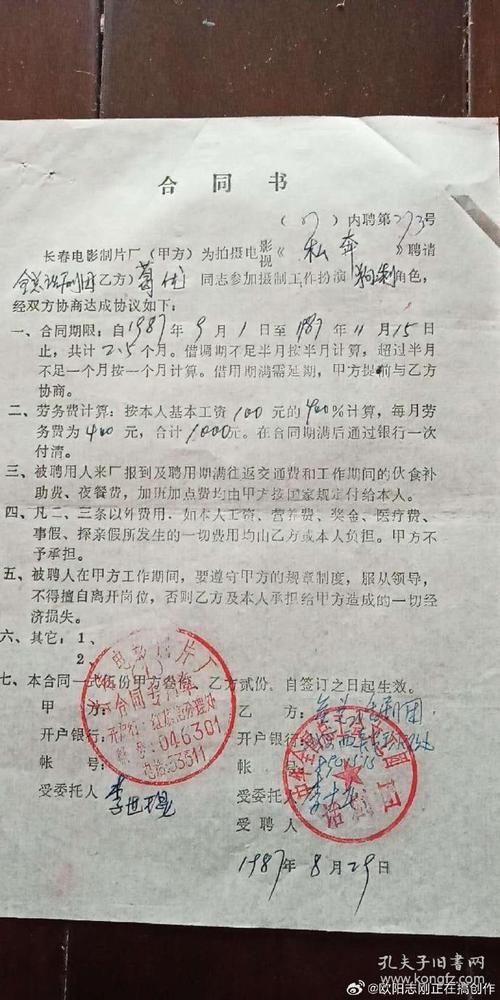 合同书
(87)内聘第273号
长春电影制片厂(甲方)为拍摄电影视《私奔》聘请
全总话剧团(乙方)葛优同志参加摄制工作扮演 角色,
经双方协商达成协议如下:
一、合同期限:自1987年9月1日至1987年11月15日
止,共计2.5个月。借调期不足半月按半月计算,超过半月
不足一个月按一个月计算。借用期满需延期,甲方提前与乙方
协商。
二、劳务费计算:按本人基本工资100元的400%计算,每月劳
务费为400元,合计1000元。在合同期满后通过银行一次
付清。
三、被聘用人来厂报到及聘用期满往返交通费和工作期间的伙食补
助费、夜餐费,加班加点费均由甲方按国家规定付给本人。
四、凡二、三条以外费用.如本人工资、营养费、奖金、医疗费、
事假、探亲假所发生的一切费用均由乙方或本人负担。甲方不
予承担。
五、被聘人在甲方工作期间,要遵守甲方的规章制度,服从领导,
不得擅自离开岗位,否则乙方及本人承担给甲方造成的一切经
济损失。
六、其它:1、
2、
七、本合同一式伍份甲方叁份,乙方贰份,自签订之日起生效。
甲方:
开户银行:
帐号:
受委托人
乙方:全总话剧团
开户银行:
帐号:
受委托人
受聘人
电影制片厂
合同专用章
开户行:红旗街办理处
帐号:046301
电话:53511
中华全国总工会
话剧团
1987年8月29日
孔夫子旧书网
www.kongfz.com
@欧阳志刚正在搞创作